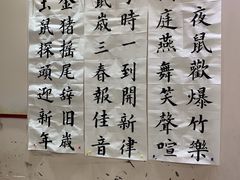 夜鼠歡爆竹樂
庭燕舞笑聲喧
時一到開新律
鼠歲三春報佳音
金猪摇尾辞旧歲
玉鼠探頭迎新年